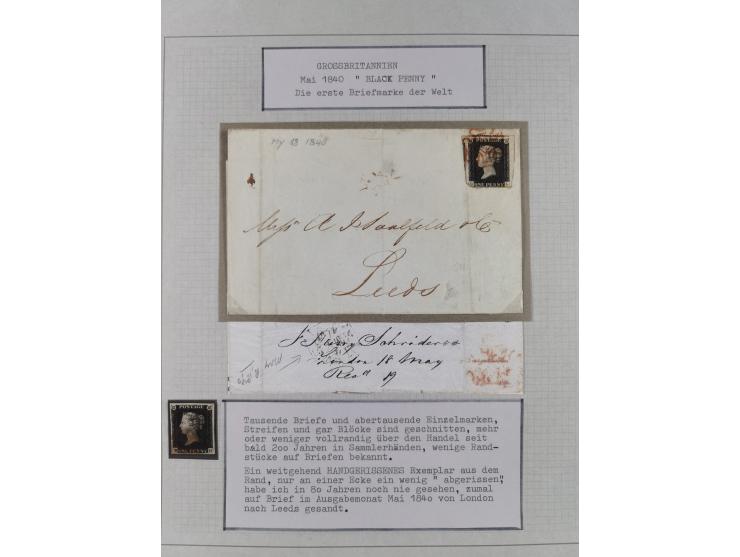 GROSSBRITANNIEN
Mai 1840 " BLACK PENNY "
Die erste Briefmarke der Welt
My 18 1840
POSTAGE
ONE PENNY
Messrs A J Saalfeld & Co
Leeds
J. Henry Schröder & Co
London 18 May
Recd 19
POSTAGE
ONE PENNY
Tausende Briefe und abertausende Einzelmarken,
Streifen und gar Blöcke sind geschnitten, mehr
oder weniger vollrandig über den Handel seit
bald 2oo Jahren in Sammlerhänden, wenige Rand-
stücke auf Briefen bekannt.
Ein weitgehend HANDGERISSENES Exemplar aus dem
Rand, nur an einer Ecke ein wenig " abgerissen",
habe ich in 8o Jahren noch nie gesehen, zumal
auf Brief im Ausgabemonat Mai 184o von London
nach Leeds gesandt.